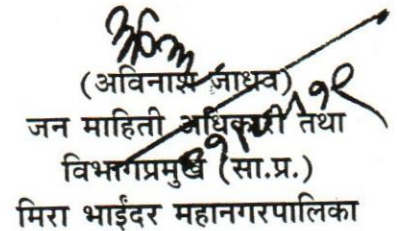 (अविनाश जाधव)
जन माहिती अधिकारी तथा
विभागप्रमुख (सा.प्र.)
मिरा भाईंदर महानगरपालिका